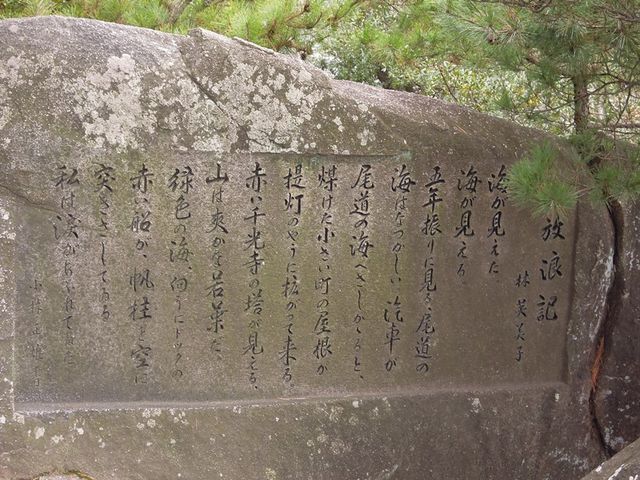 放浪記
林芙美子
海が見えた、
海が見える、
五年振りに見る、尾道の
海はなつかしい、汽車が
尾道の海へさしかゝると、
煤けた小さい町の屋根が
提灯のやうに拡がつて来る、
赤い千光寺の塔が見える、
山は爽かな若葉だ、
緑色の海、向うにドックの
赤い船が、帆柱を空に
突きさしてゐる
私は涙があふれて
小林正雄書